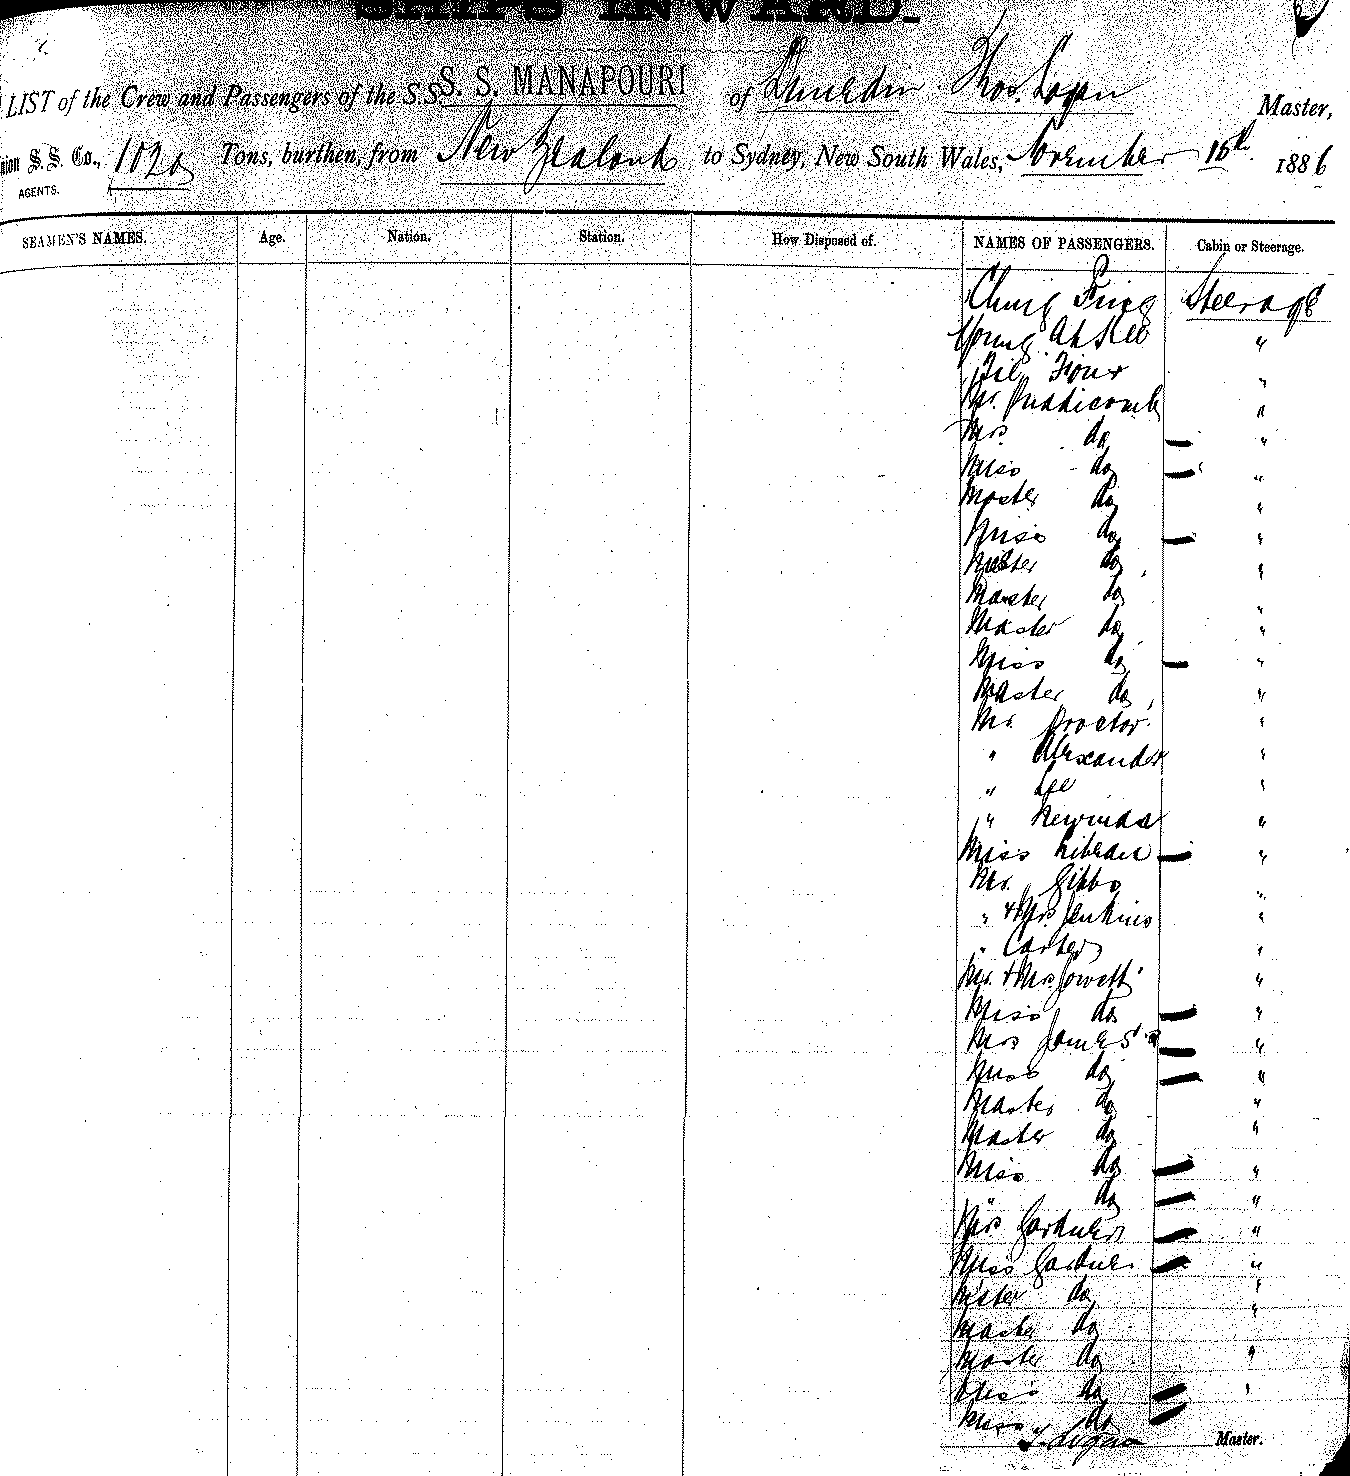 SHIPS INWARD.
LIST of the Crew and Passengers of the S.S. S. S. MANAPOURI of Dunedin Thos. Logan Master,
S.S. Co., 1020 Tons, burthen, from New Zealand to Sydney, New South Wales, November 15th 1886
AGENTS.
SEAMEN'S NAMES. Age. Nation. Station. How Disposed of. NAMES OF PASSENGERS. Cabin or Steerage.
Chung Steerage
Young "
"
Mr. Puddicomb "
Mrs do "
Miss do "
Master do "
Miss do "
Master do "
Master do "
Master do "
Miss do "
Master do "
Mr. Proctor "
" Alexander "
" Lee "
" "
Miss "
Mr. Gibbs "
" & Mrs Jenkins "
" Carter "
Mr. & Mrs Jowett "
Miss do "
Mrs James "
Miss do "
Master do "
Master do "
Miss do "
" do "
Mrs Gardner "
Miss Gardner "
Master do "
Master do "
Master do "
Miss do "
Miss do
T. Logan Master.